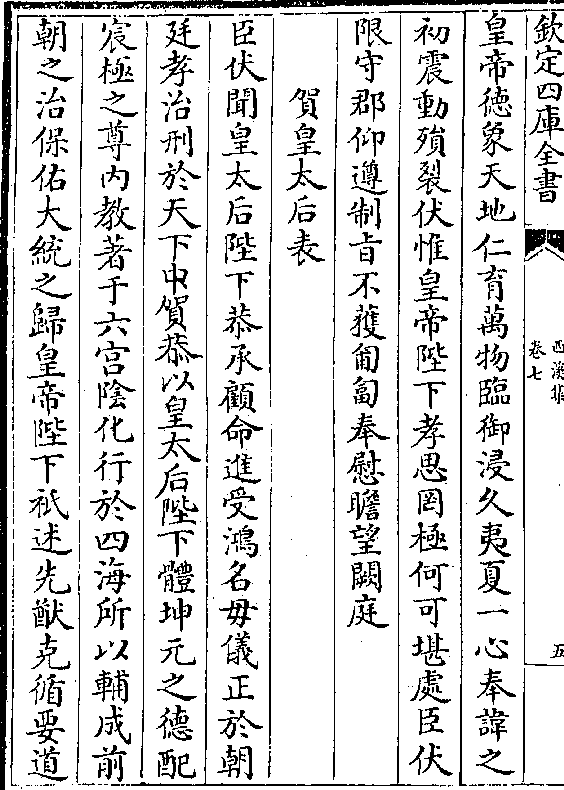 欽定四庫全書
西溪集
卷七
五
皇帝德象天地仁育萬物臨御浸久夷夏一心奉諱之
初震動殞裂伏惟皇帝陛下孝思罔極何可堪處臣伏
限守郡仰遵制旨不獲匍匐奉慰瞻望闕庭
賀皇太后表
臣伏聞皇太后陛下恭承顧命進受鴻名毋儀正於朝
廷孝治刑於天下中賀恭以皇太后陛下體坤元之德配
宸極之尊内教著于六宫陰化行於四海所以輔成前
朝之治保佑大統之歸皇帝陛下祇述先猷克循要道